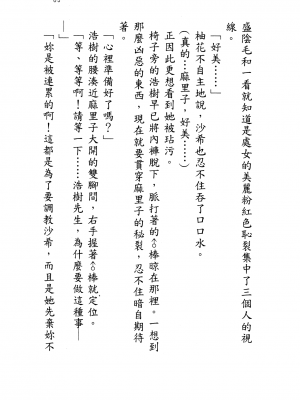 盛陰毛和一看就知道是處女的美麗粉紅色恥裂集中了三個人的視
線。
「好美……」
柚花不自主地說,沙希也忍不住吞了口口水。
(真的…麻里子,好美……)
正因此更想看到她被玷污。
椅子旁的浩樹早已將內褲脫下,脈打著的^^棒晾在那裡。一想到
那麼凶惡的東西,現在就要貫穿麻里子的秘裂,忍不住暗自期待
著。
「心裡準備好了嗎?」
浩樹的腰湊近麻里子大開的雙腳間,右手握著^^棒就定位。
「等、等等啊!請等一下……浩樹先生,為什麼要做這種事─
─」
「妳是被連累的啊!這都是為了要調教沙希,而且是她先棄妳不